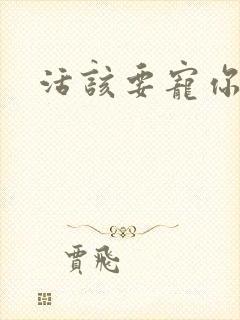 活該要寵你
賈飛